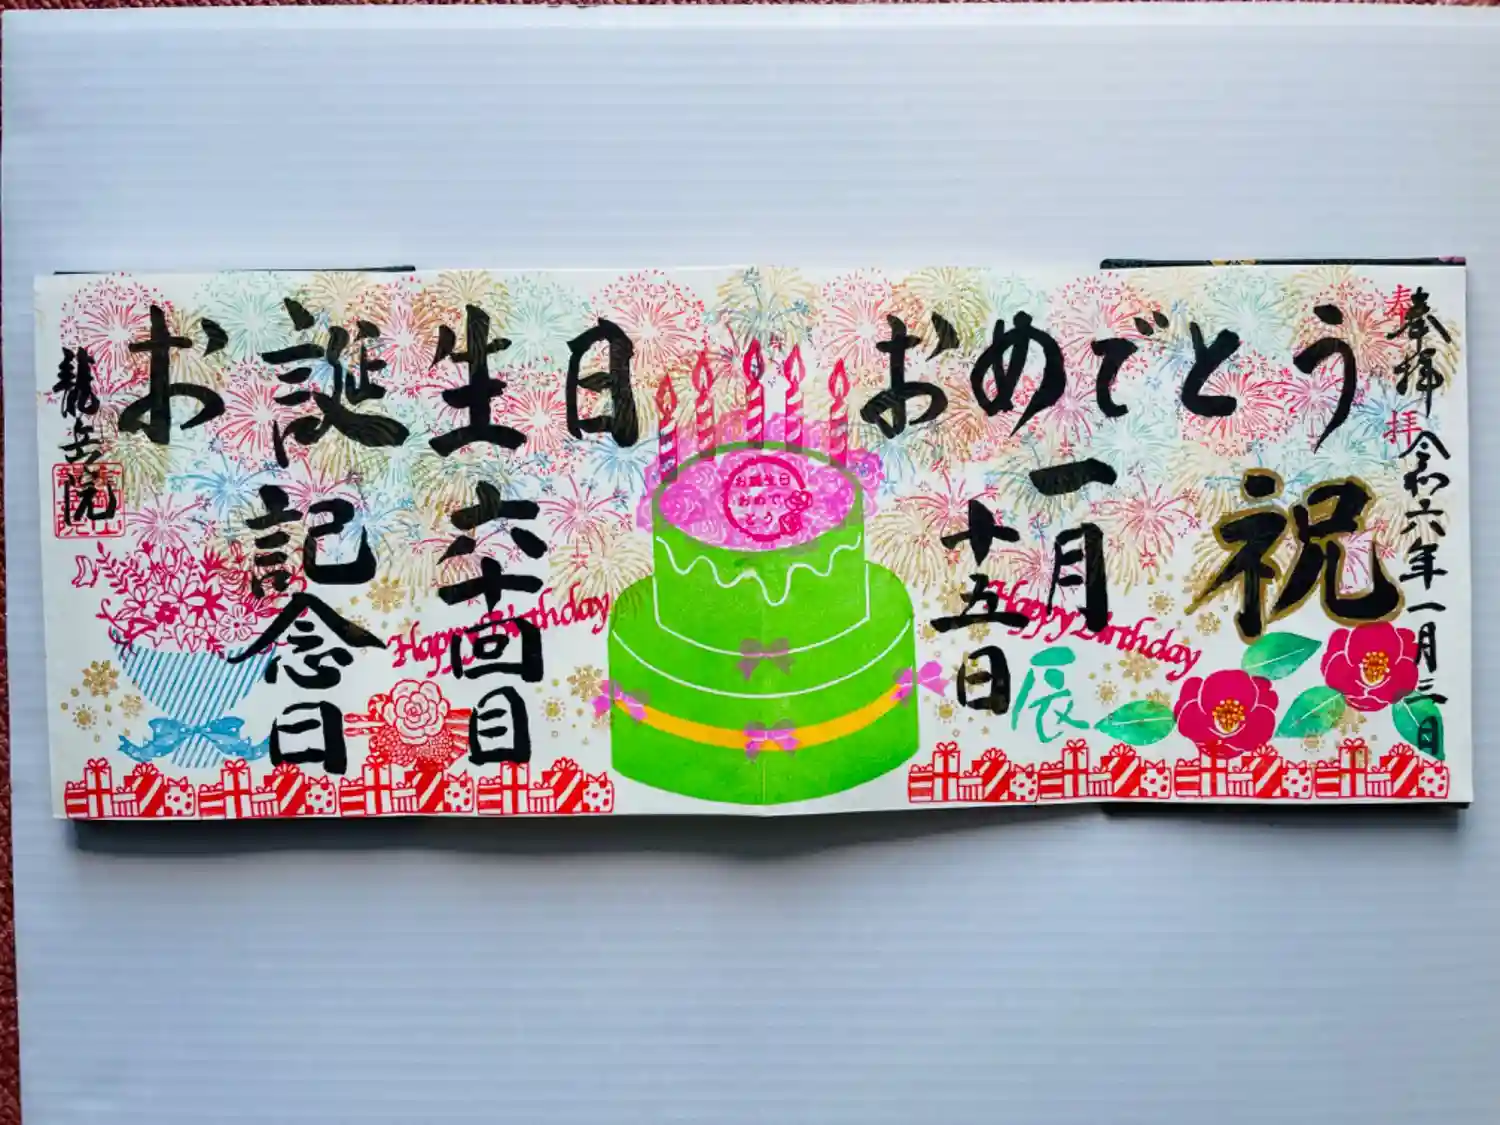 お誕生日おめでとう
奉拝
奉拝
令和六年一月三日
祝
一月
十五日
辰
六十回目
記念日
龍岳院
お誕生日
おめで
とう
Happy Birthday
Happy Birthday